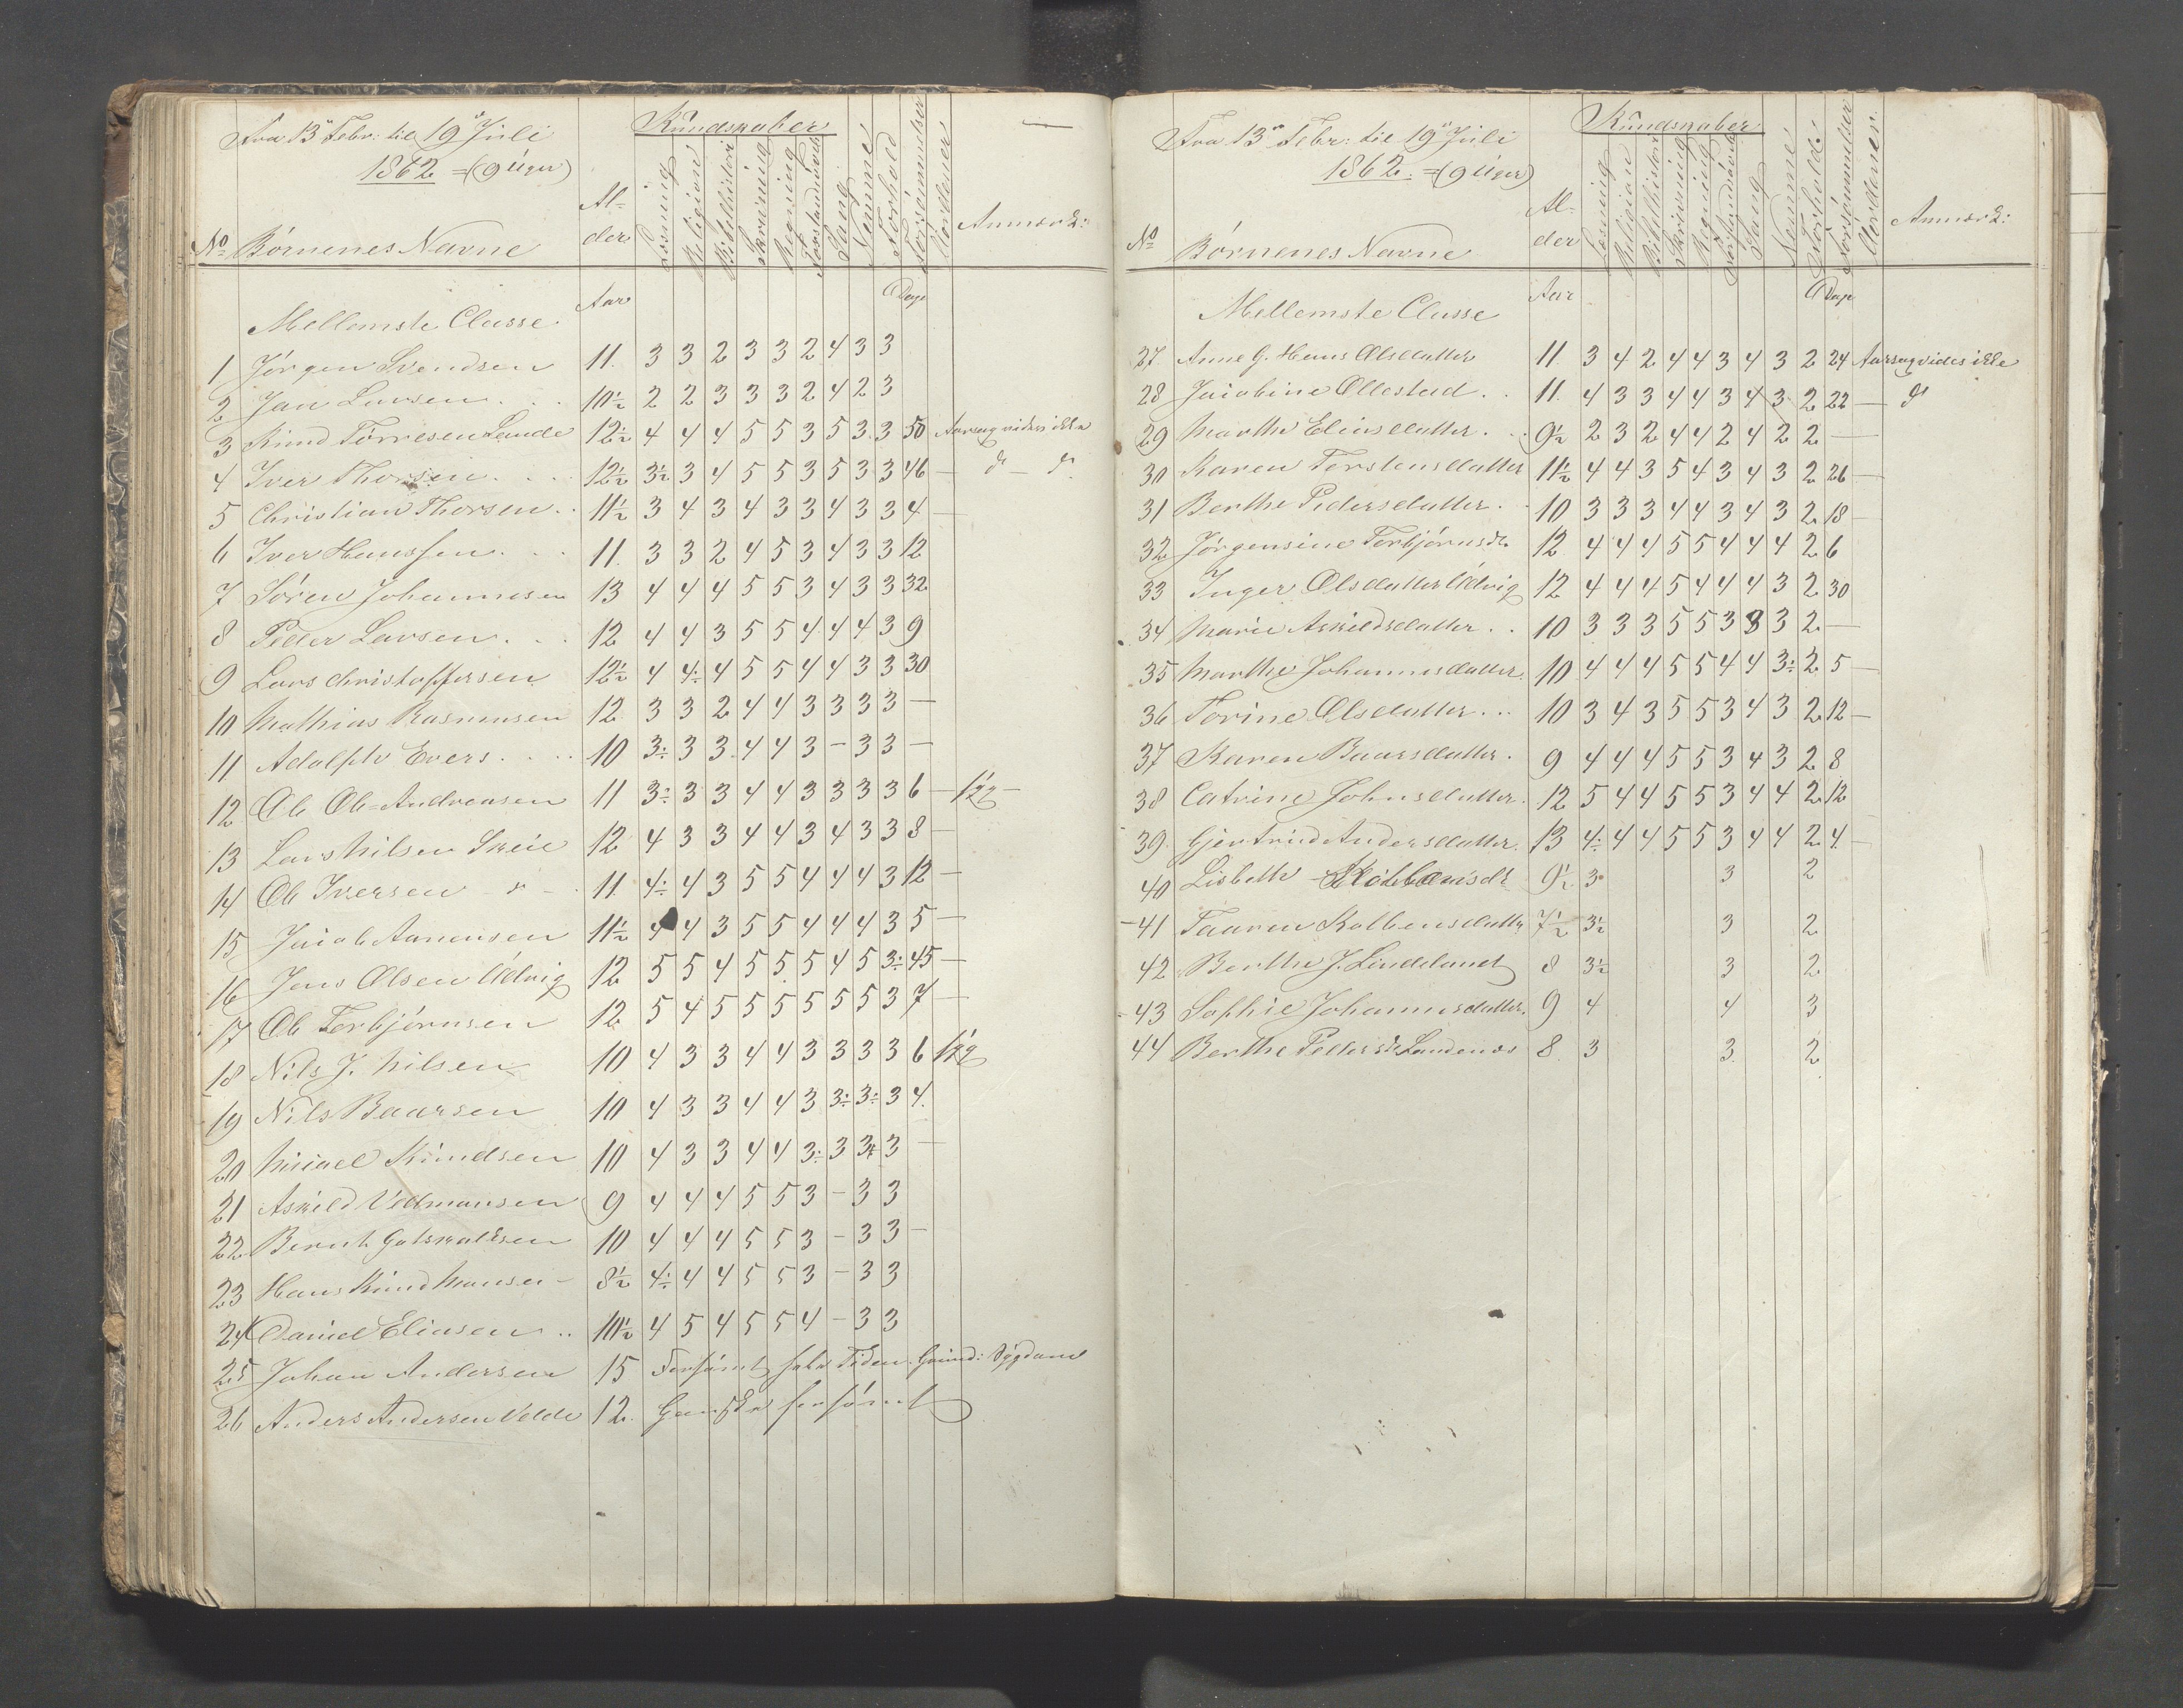 Fra 13de Febr: til 19de Juli
1862 = (9 Uger)
No Børnenes Navne Al-der Kundskaber Læsning Religion Bibelhistori Skrivning Regning Forstandsøvels Sang Nemme Forhold Forsømmelser Anmærk:
Mellemste Classe Aar Dage
1 Jørgen Svendsen 11. 3 3 2 3 3 2 4 3 3
2 Jan Larsen . . 10½ 2 2 3 3 3 2 4 2 3
3 Knud Tørresen Lande 12½ 4 4 4 5 5 3 5 3. 3 50 Aarsag vides ikke
4 Iver Thorsen . . . 12½ 3½ 3 4 5 5 3 5 3 3 46 — do — do
5 Christian Thorsen . . 11½ 3 4 3 4 3 3 4 3 3 4 —
6 Iver Hanssen . . . 11. 3 3 2 4 5 3 4 3 3 12
7 Søren Johannesen 13 4 4 4 5 5 3 4 3 3 32
8 Peder Larsen . . . 12 4 4 3 5 5 4 4 4 3 9
9 Lars Christoffersen 12½ 4 4÷ 4 5 5 4 4 3 3 30
10 Mathias Rasmusen 12 3 3 2 4 4 3 3 3 3 —
11 Adolph Evers . . . . 10 3÷ 3 3 4 4 3 — 3 3 —
12 Ole Ole-Andreasen 11 3÷ 3 3 4 4 3 3 3 3 6 —
13 Lars Nilsen Skeie 12 4 3 3 4 4 3 4 3 3 8 —
14 Ole Iversen - do - 11 4÷ 4 3 5 5 4 4 4 3 12 —
15 Jacob Aanensen 11½ 4 4 3 5 5 4 4 4 3 5 —
16 Jens Olsen Udvig 12 5 5 4 5 5 5 4 5 3÷ 45 —
17 Ole Torbjørnsen 12 5 4 5 5 5 5 5 5 3 7 —
18 Nils J. Nilsen 10 4 3 3 4 4 3 3 3 3 6
19 Nils Baarsen 10 4 3 3 4 4 3 3÷ 3÷ 3 4.
20 Micael Knudsen 10 4 3 3 4 4 3÷ 3 3 —
21 Askild Vedmansen 9 4 4 4 5 5 3 — 3 3
22 Bernt Gotskalksen 10 4 4 4 5 5 3 — 3 3 —
23 Hans Knud Hansen — 8½ 4÷ 4 4 5 5 3 — 3 3
24 Daniel Eliasen . . 10½ 4 5 4 5 5 4 — 3 3
25 Johan Andersen 15 Forsømt hele Tiden. Grund: Sygdom
26 Anders Andersen Velde 12. Ganske forsømt
Fra 13de Febr: til 19de Juli
1862. = (9 Uger)
No Børnenes Navne Al-der Kundskaber Læsning Religion Bibelhistori Skrivning Regning Forstandsøvels Sang Nemme Forhold: Forsømmelser Anmærk:
Mellemste Classe Aar Dage
27 Anne G. Hans Olsdatter 11 3 4 2 4 4 3 4 3 2 24 Aarsag vides ikke
28 Jacobine Ollestad . . 11. 4 3 3 4 4 3 4 3 2 22 — do
29 Marthe Eliasdatter . . 9½ 2 3 2 4 4 2 4 2 2 —
30 Karen Torstensdatter 11½ 4 4 3 5 4 3 4 3 2 26 —
31 Berthe Pedersdatter . . 10 3 3 3 4 4 3 4 3 2 18 —
32 Jørgensine Torbjørnsdr 12 4 4 4 5 5 4 4 4 2 6
33 Inger Olsdatter Udvig 12 4 4 4 5 4 4 4 3 2 30
34 Marie Askildsdatter . . 10 3 3 3 5 5 3 3 3 2 —
35 Marthe Johannesdatter. 10 4 4 4 5 5 4 4 3÷ 2 5 —
36 Torine Olsdatter . . . 10 3 4 3 5 5 3 4 3 2 12 —
37 Karen Baarsdatter . 9 4 4 4 5 5 3 4 3 2 8
38 Catrine Johnsdatter. 12 5 4 4 5 5 3 4 4 2 12
39. Gjertrud Andersdatter. 13 4÷ 4 4 5 5 3 4 4 2 4. —
40 Lisbeth 9½ 3. 3 2
41 Taaren Kolbensdatter 7½ 3½ 3 2
42 Berthe J. Lindeland 8 3½ 3 2
43 Sophie Johannesdatter. 9 4 4 3
44 Berthe Pedersdr Landenes 8. 3 3. 2